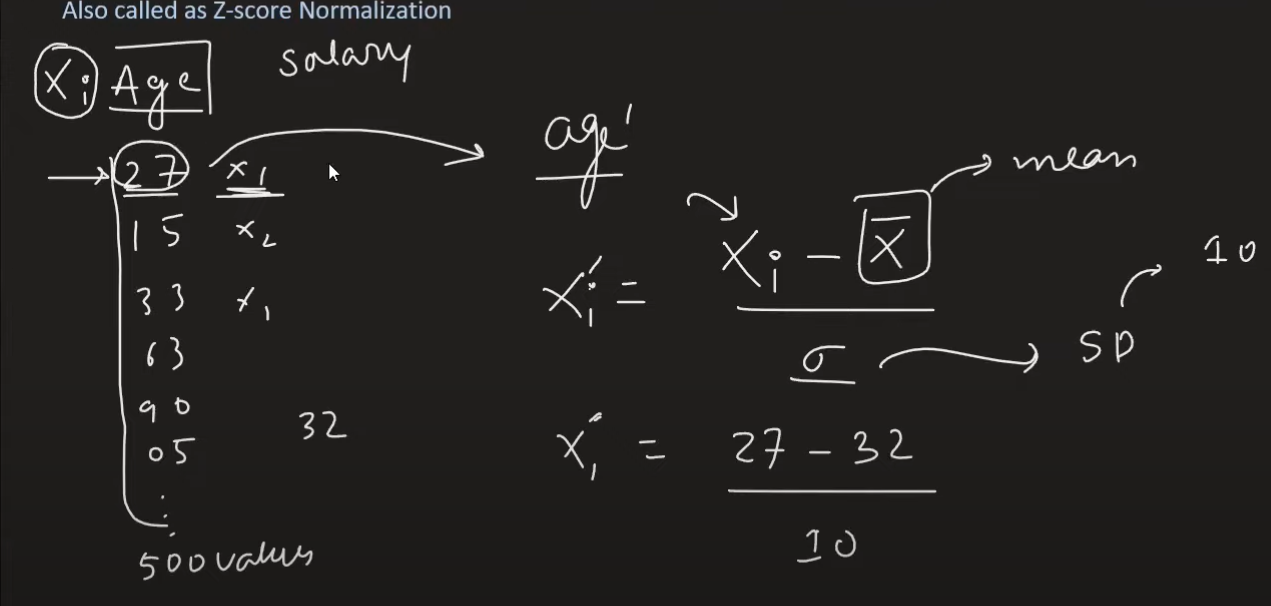 Also called as Z-score Normalization
Xi Age salary
27 x₁ age'
15 x₂
33 x₁
63
90
05
⋮
500 values
32
xi' = (xi − x̄) / σ
mean
SD
10
x₁' = (27 − 32) / 10